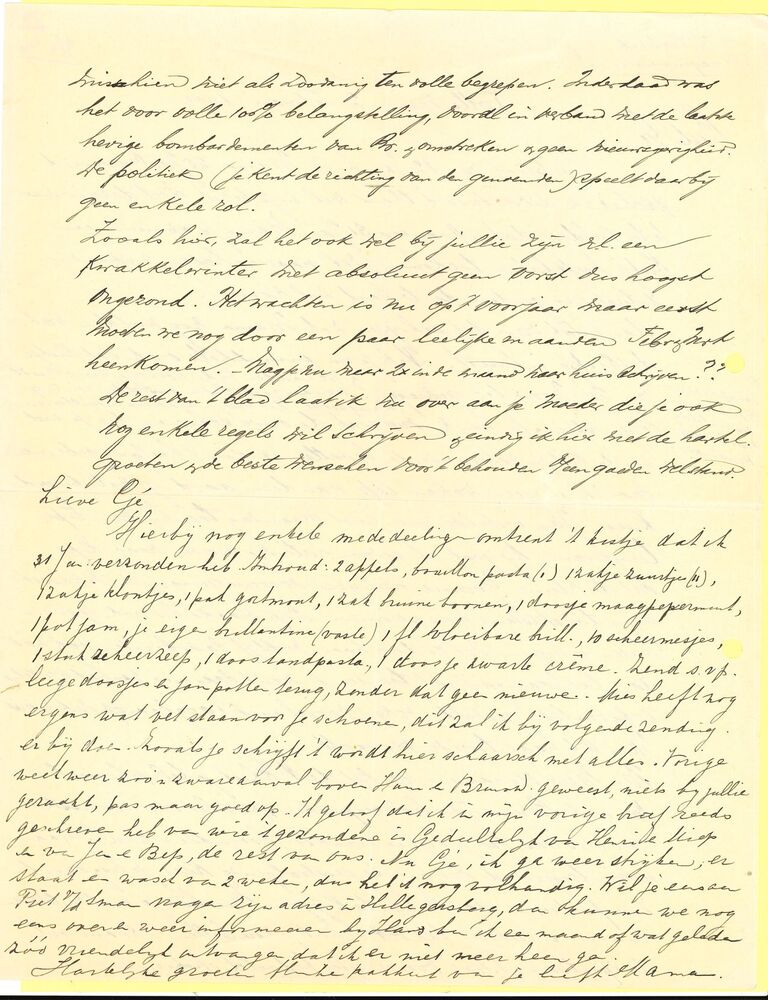 misschien niet als zoodanig ten volle begrepen. Inderdaad was
het voor volle 100% belangstelling, vooral in verband met de laatste
hevige bombardementen van Br. & omstreken & geen nieuwsgierigheid.
De politiek (je kent de richting van den genoemden) speelt daarbij
geen enkele rol.
Zooals hier, zal het ook wel bij jullie zijn nl. een
kwakkelwinter met absoluut geen vorst dus hoogst
ongezond. Het wachten is nu op 't voorjaar maar eerst
moeten we nog door een paar leelijke maanden Febr & Mrt
heenkomen. - Mag je nu maar 2x in de maand naar huis schrijven??
De rest van 't blad laat ik nu over aan je Moeder die je ook
nog enkele regels wil schrijven & eindig ik hier met de hartel.
groeten & de beste wenschen voor 't behouden goeden welstand.
Lieve Gé
Hierbij nog enkele mededeelingen omtrent 't kistje dat ik
31 Jan. verzonden heb. Inhoud: 2 appels, bouillon pasta (1) 1 zakje zuurtjes (11),
1 zakje klontjes, 1 pak gortmout, 1 zak bruine boonen, 1 doosje maagpepermunt,
1 pot jam, je eigen brillantine (vaste) 1 fl. vloeibare brill., 10 scheermesjes,
1 stuk scheerzeep, 1 doos tandpasta, 1 doosje zwarte crême. Zend s.v.p.
leege doosjes & jampotten terug, zonder dat geen nieuwe. Mies heeft nog
ergens wat vet staan voor je schoenen, dit zal ik bij volgende zending
er bij doen. Zooals je schrijft 't wordt hier schaarsch met alles. Vorige
week weer zoo'n zware aanval boven Han. & Brunsw. geweest, niets bij jullie
geraakt, pas maar goed op. Ik geloof dat ik in mijn vorige brief reeds
geschreven heb van wie 't gezondene is. Gedeeltelijk van Henri & Miep
en van Jan & Bep, de rest van ons. Nu Gé, ik ga weer strijken, er
staat en wasch van 2 weken, dus heb ik nog volhandig. Wil je eens aan
Piet v/d Sman vragen zijn adres in Hillegersberg, dan kunnen we nog
eens over en weer informeeren, bij ben ik een maand of wat geleden
zóó vriendelijk ontvangen, dat ik er niet meer heen ga.
Hartelijke groeten flinke pakkert van je liefh. Mama.